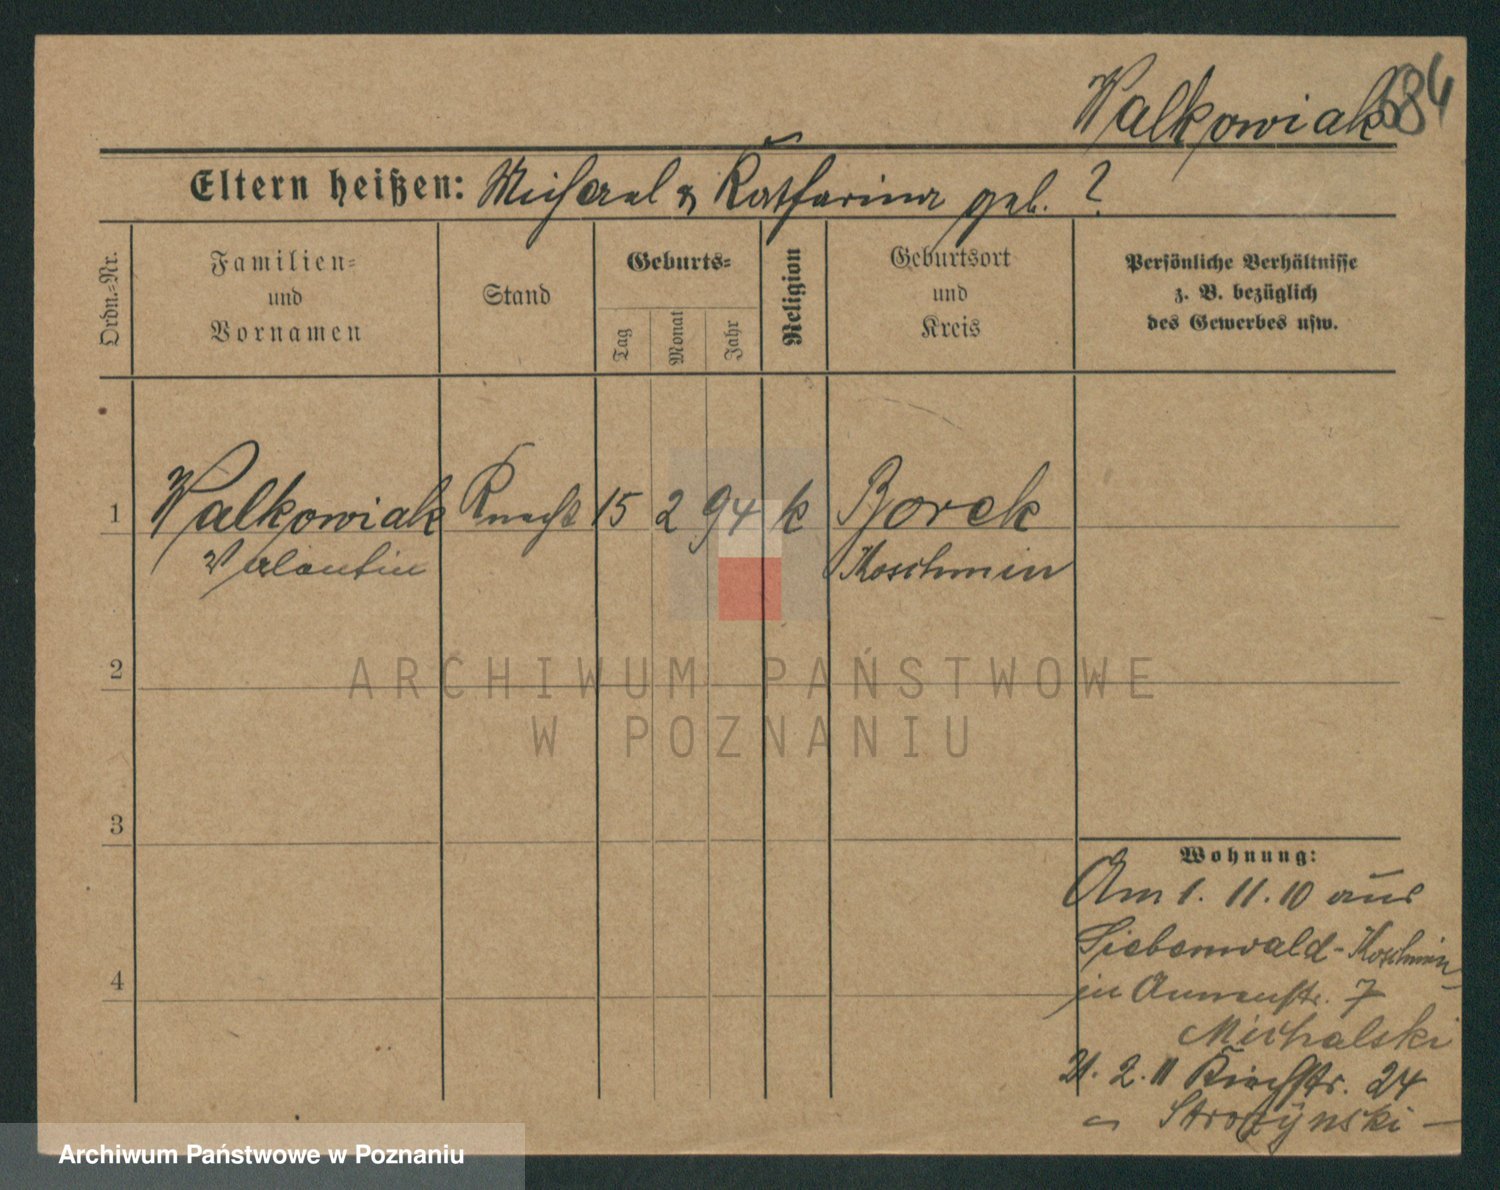 Walkowiak 684
Eltern heißen: Michael & Katharina geb. ?
Ordn.=Nr.
Familien=
und
Vornamen
Stand
Geburts=
Tag
Monat
Jahr
Religion
Geburtsort
und
Kreis
Persönliche Verhältnisse
z. B. bezüglich
des Gewerbes usw.
1 Walkowiak Knecht 15 2 94 k Borek
Valentin Koschmin
2
ARCHIWUM PAŃSTWOWE
W POZNANIU
3
Wohnung:
Am 1. 11. 10 aus
Siebenwald-Koschmin
in Annenstr. 7
4
Michalski
21. 2. 11 Kirchstr. 24
Strozynski
Archiwum Państwowe w Poznaniu